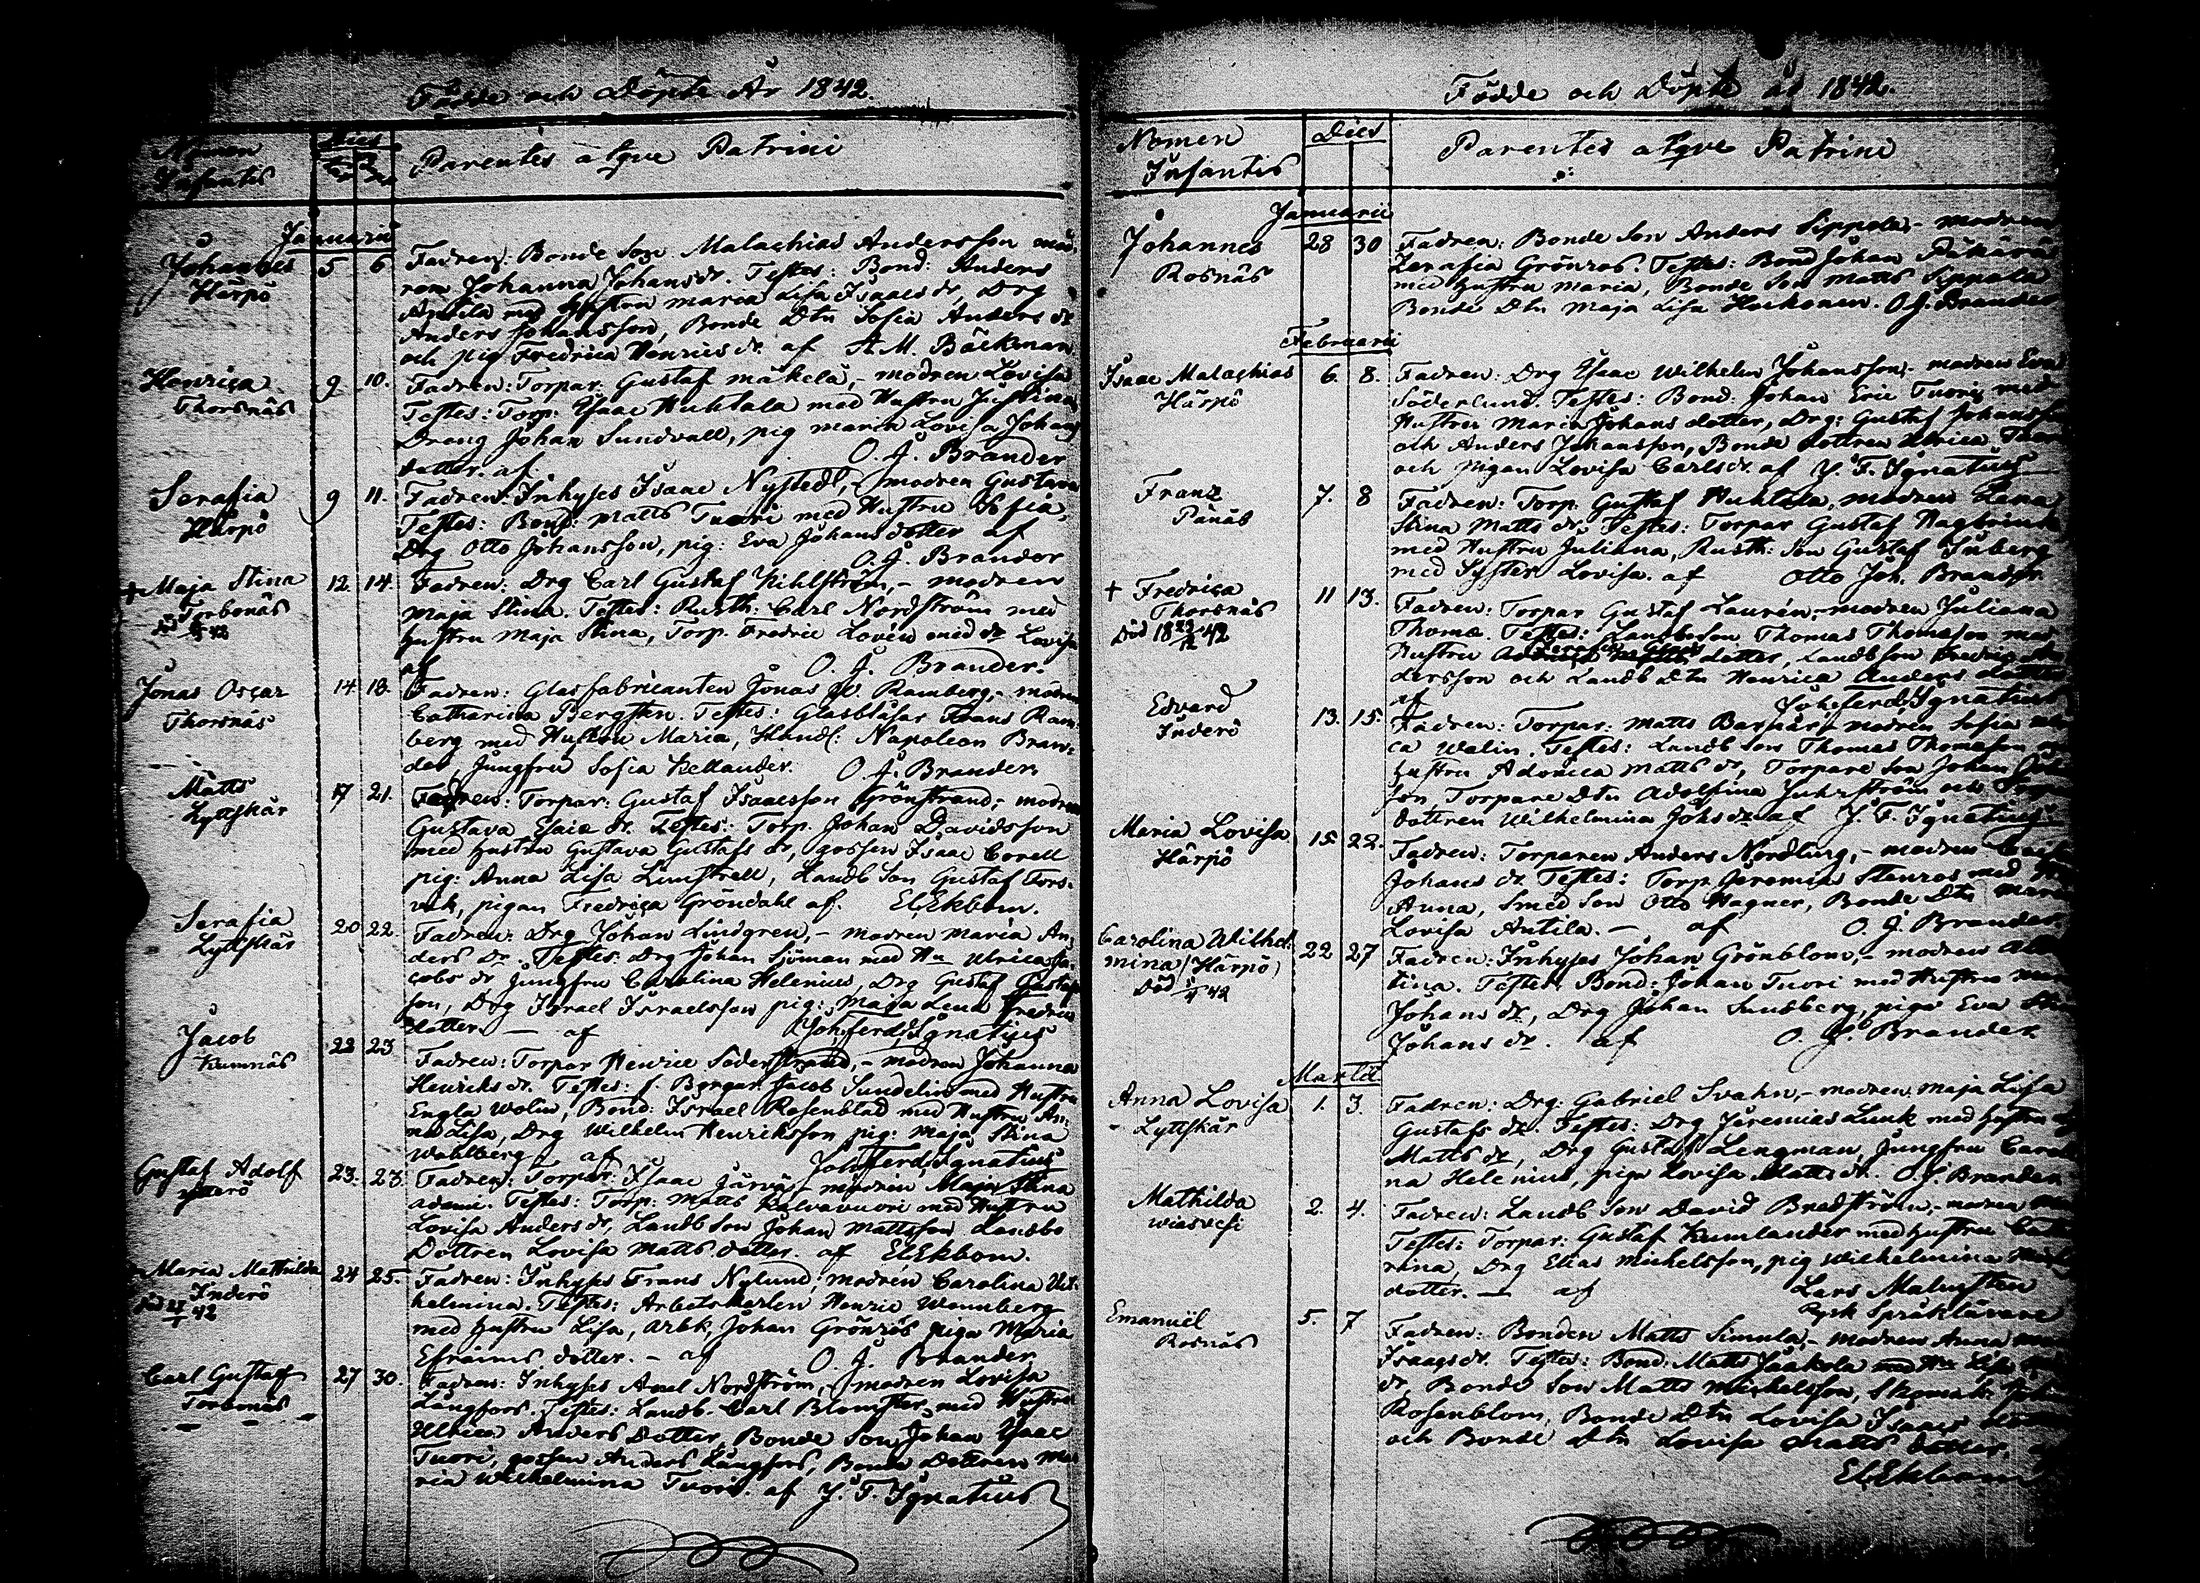 Födde och Döpte År 1842.
Nomen Infantis
Dies
Parentes atqve Patrini
Januarii
Johannes
Härpö
5 6
Fadren: Bonde Son Malachias Andersson mod-
ren Johanna Johans dr. Testes: Bond: Anders
Antila med Hustru Maria Lisa Isaacs dr, Drg
Anders Johansson, Bonde Dtn Sofia Anders dr
och pig Fredrica Henrics dr. af A. M. Bäckman
Henrica
Thorsnäs
9 10.
Fadren: Torpar. Gustaf Mäkelä, - modren Lovisa
Testes: Torp: Isaac Huhtala med Hustru Justina,
Dräng Johan Sundvall, pig Maria Lovisa Johans
dotter. af O. J. Brander
Serafia
Härpö
9 11.
Fadren: Inhyses Isaac Nystedt, modren Gustava
Testes: Bond: Matts Tuori med Hustru Sofia,
Drg Otto Johansson, pig: Eva Johans dotter af
O. J. Brander
+ Maja Stina
Torbonäs
12 14.
Fadren: Drg Carl Gustaf Kihlström, - modren
Maja Stina. Testes: Rusth: Carl Nordström med
hustru Maja Stina, Torp. Fredric Lovén med dr Lovisa
af O. J. Brander.
Jonas Oscar
Thorsnäs
14 18.
Fadren: Glasfabricanten Jonas Ramberg, - modren
Catharina Bergsten. Testes: Glasblåsar Frans Ram-
berg med Hustru Maria, Handl: Napoleon Bran-
der, Jungfru Sofia Kellander. O. J. Brander
Matts
Lyttskär
17 21.
Fadren: Torpar: Gustaf Isaacsson Grönstrand, - modren
Gustava Esaiæ dr. Testes: Torp. Johan Davidsson
med hustru Gustava Gustafs dr, gossen Isaac Corell
pig: Anna Lisa Limstrell, Landb Son Gustaf Fors-
, pigan Fredrica Gröndahl af. El. Ekbom.
Serafia
Lyttskär
20 22
Fadren: Drg Johan Lindgren, - modren Maria An-
ders Dr. Testes: Drg Johan Sjöman med Hu Ulrica Ja-
cobs dr, Jungfru Carolina Helenius, Drg Gustaf Gustafs-
son, Drg Israel Israelsson pig: Maja Lena Fredrics
dotter - af Joh. Ferd. Ignatius
Jacob
Kumnäs
22 23
Fadren: Torpar Henric Söderstrand, - modren Johanna
Henriks dr. Testes: f. Borgar Jacob Sundelin med Hustru
Engla Wolin, Bond: Israel Rosenblad med Hustru An-
na Lisa, Drg Wilhelm Henriksson pig: Maja Stina
Wahlberg af Joh. Ferd. Ignatius
Gustaf Adolf
ytterö
23. 23
Fadren: Torpar: Isaac Järvä, - modren Maja Stina
Adami. Testes: Torp: Matts Kalvavuori med Hustru
Lovisa Anders dr, Landb Son Johan Mattsson Landbo
Dottren Lovisa Matts dotter. af El. Ekbom.
Maria Mathilda
Inderö
24 25.
Fadren: Inhyses Frans Nylund, modren Carolina Wil-
helmina. Testes: Arbetskarlen Henric Wennberg
med hustru Lisa, Arbk, Johan Grönroos piga Maria
Efraims dotter. - af O. J. Brander
Carl Gustaf
Torbonäs
27 30.
Fadren: Inhyses Axel Nordström, - modren Lovisa
Långfors. Testes: Landb. Carl Blomster med Hustru
Ulrica Anders Dotter, Bonde Son Johan Isaac
Tuori, gossen Anders Långfors, Bonde Dottren Ma-
ria Wilhelmina Tuori. af J. F. Ignatius
Födde och Döpte år 1842.
Nomen Infantis
Dies
Parentes atqve Patrini
Januarii
Johannes
Rosnäs
28 30
Fadren: Bonde Son Anders Sippola, - modren
Serafia Grönroos. Testes: Bond Johan
med hustru Maria, Bonde Son Matts Sippola
Bonde Dtn Maja Lisa Heikonen. O. J. Brander
Februarii
Isaac Malachias
Härpö
6. 8.
Fadren: Drg Isaac Wilhelm Johansson, - modren Eva
Söderlund. Testes: Bond. Johan Eric Tuori med
Hustru Maria Johans dotter, Drg: Gustaf Johansson
och Anders Johansson, Bonde dottren Ulrica Tuori
och Pigan Lovisa Carls dr. af J. F. Ignatius
Franz
Pånäs
7. 8
Fadren: Torp. Gustaf Huhtala, modren Lena
Stina Matts dr. Testes: Torpar Gustaf Hagbrink
med Hustru Juliana, Rusth: Son Gustaf Inberg
med Syster Lovisa. af Otto Joh. Brander
+ Fredrica
Thorsnäs
11 13.
Fadren: Torpar Gustaf Laurén, - modren Juliana
Thomæ. Testes: Landb Son Thomas Thomasson med
Hustru dotter, Landb Son Fredric An-
dersson och Landb Dtn Henrica Anders dotter
af Joh. Ferd. Ignatius
Edvard
Inderö
13. 15.
Fadren: Torpar. Matts Barkar, modren Sofia
ca Walin. Testes: Landb Son Thomas Thomasson
hustru Adonica Matts dr, Torpare Son Johan
son, Torpare Dtn Adolfina Juhrström och Torpar
dottren Wilhelmina Johs dr. af J. F. Ignatius
Maria Lovisa
Härpö
15 22.
Fadren: Torparen Anders Nordlung, - modren Caisa
Johans dr Testes: Torp. Jeremia Stenroos med Hu
Anna, Smed Son Otto Wagner, Bonde Dtn Maria
Lovisa Antila. - af O. J. Brander.
Carolina Wilhel-
mina (Härpö)
22 27
Fadren: Inhyses Johan Grönblom, - modren Al
tina. Testes: Bond: Johan Tuori med Hustru Maria
Johans dr, Drg Johan Sundberg, piga Eva Stina
Johans dr. af O. J. Brander
Martii
Anna Lovisa
Lyttskär
1. 3.
Fadren: Drg: Gabriel Svahn, - modren Maja Lisa
Gustafs dr. Testes: Drg Jeremias Lunk med hustru
Matts dr, Drg Gustaf Lengman, Jungfru Caroli-
na Helenius, piga Lovisa Matts dr. O. J. Brander
Mathilda
wiasvesi
2. 4.
Fadren: Landb Son David Bredström, - modren
Testes: Torpar: Gustaf Kumlander med hustru Catha-
rina, Drg Elias Michelsson, pig Wilhelmina
dotter. - af Lars Malmsten
Rysk Språklärare
Emanuël
Rosnäs
5. 7
Fadren: Bonden Matts Simula, - modren Anna
Isaacs dr. Testes: Bond: Matts Jaakola med Hu Lisa
dr, Bonde Son Matts Michelsson, Skomak: Johan
Rosenblom, Bonde Dtn Lovisa Isaacs dotter
och Bonde Dtn Lovisa Matts dotter.
El. Ekbom